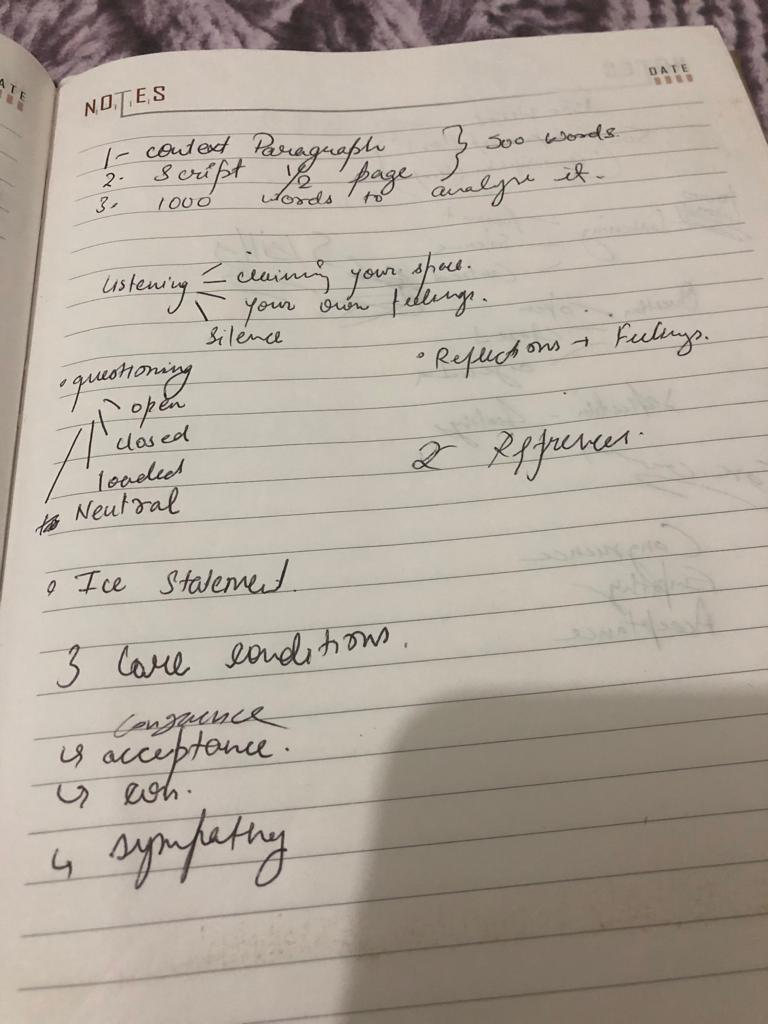 NOTES
DATE
1- context Paragraph } 500 words
2. Script 1/2 page
3. 1000 words to analyse it.
Listening
claiming your space.
your own feelings.
Silence
• Reflections → Feelings.
• questioning
open
closed
loaded
Neutral
2 Refrences.
• Ice Statement.
3 Core conditions.
Congruence
↳ acceptance.
↳ con.
↳ sympathy